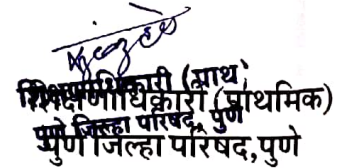 शिक्षणाधिकारी (प्राथ
शिक्षणाधिकारी (प्राथमिक)
पुणे जिल्हा परिषद, पुणे
पुणे जिल्हा परिषद, पुणे